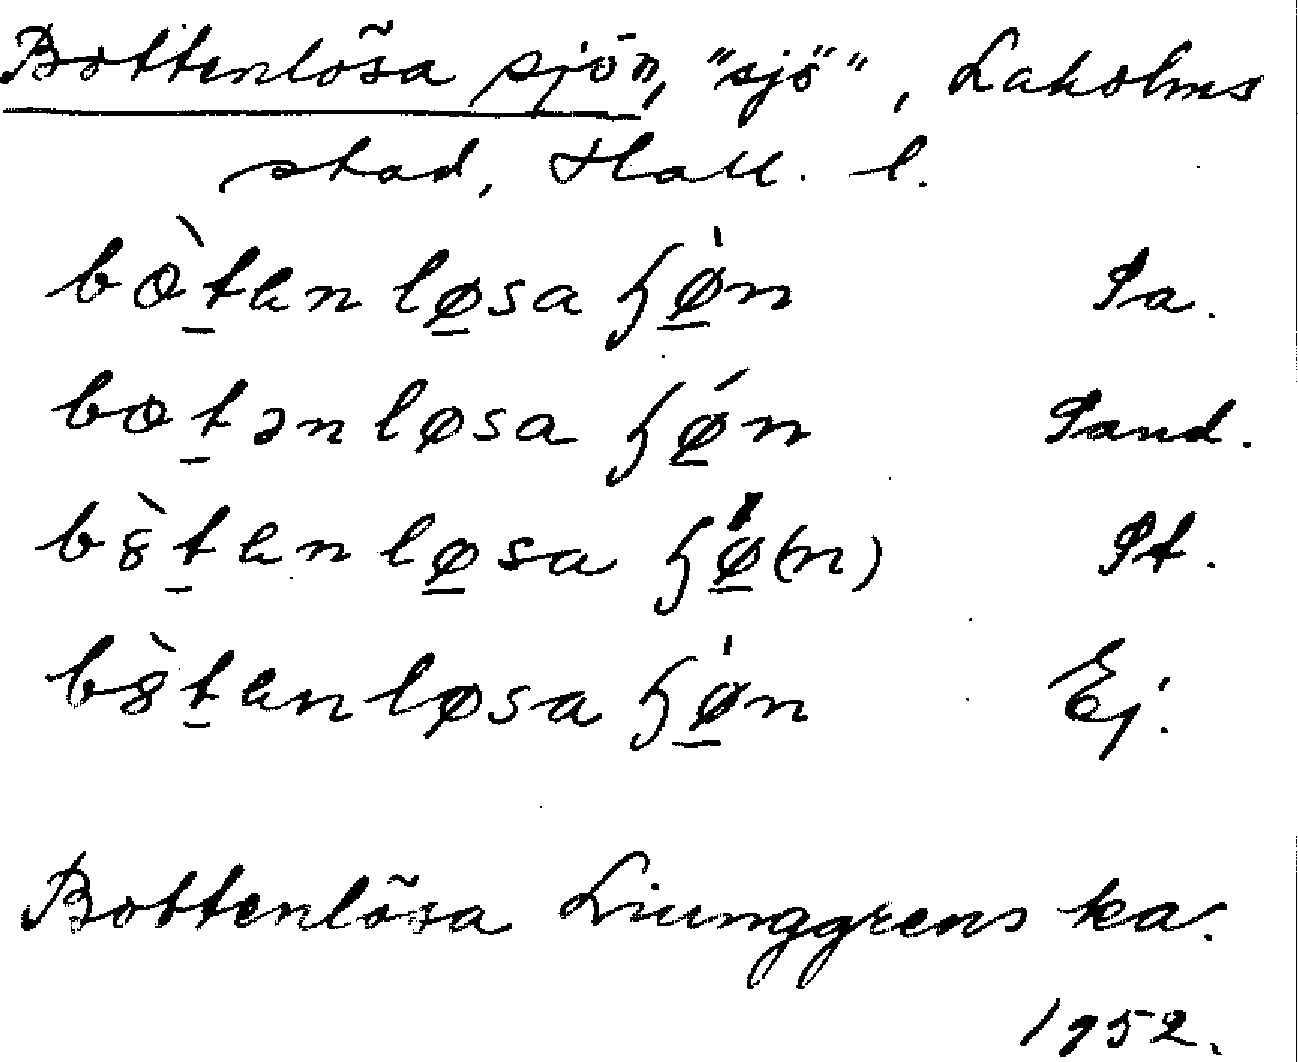 Bottenlösa sjön, "sjö", Laholms
stad, Hall. l.
bòt̲an lø̲sa ɧø̲̍n Pa.
bot̲ən løsa ɧǿ̲n Pand.
b8̀t̲an lø̲sa ɧø̲̍(n) Pt.
b8̀t̲an løsa ɧø̲̍n Ej.
Bottenlösa Liunggrens ka.
1952.